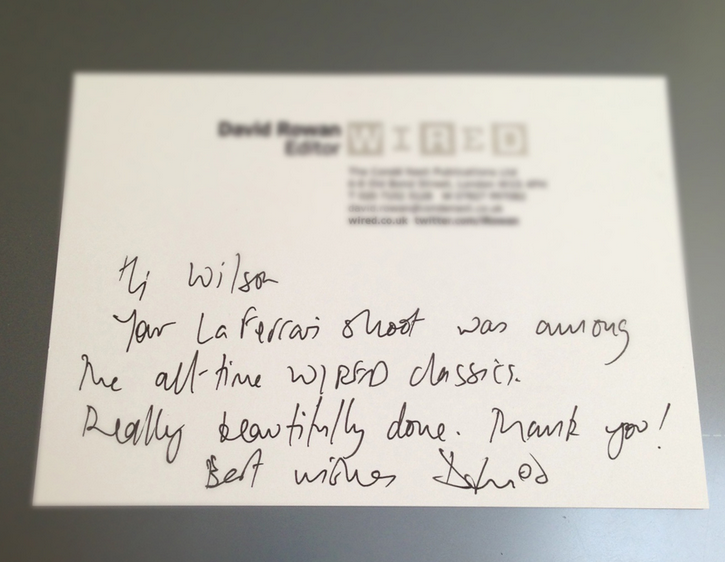 David Rowan WIRED
Editor
The Condé Nast Publications Ltd
London
wired.co.uk twitter.com/
Hi Wilson
Your LaFerrari shoot was among
the all-time WIRED classics.
Really beautifully done. Thank you!
Best wishes David